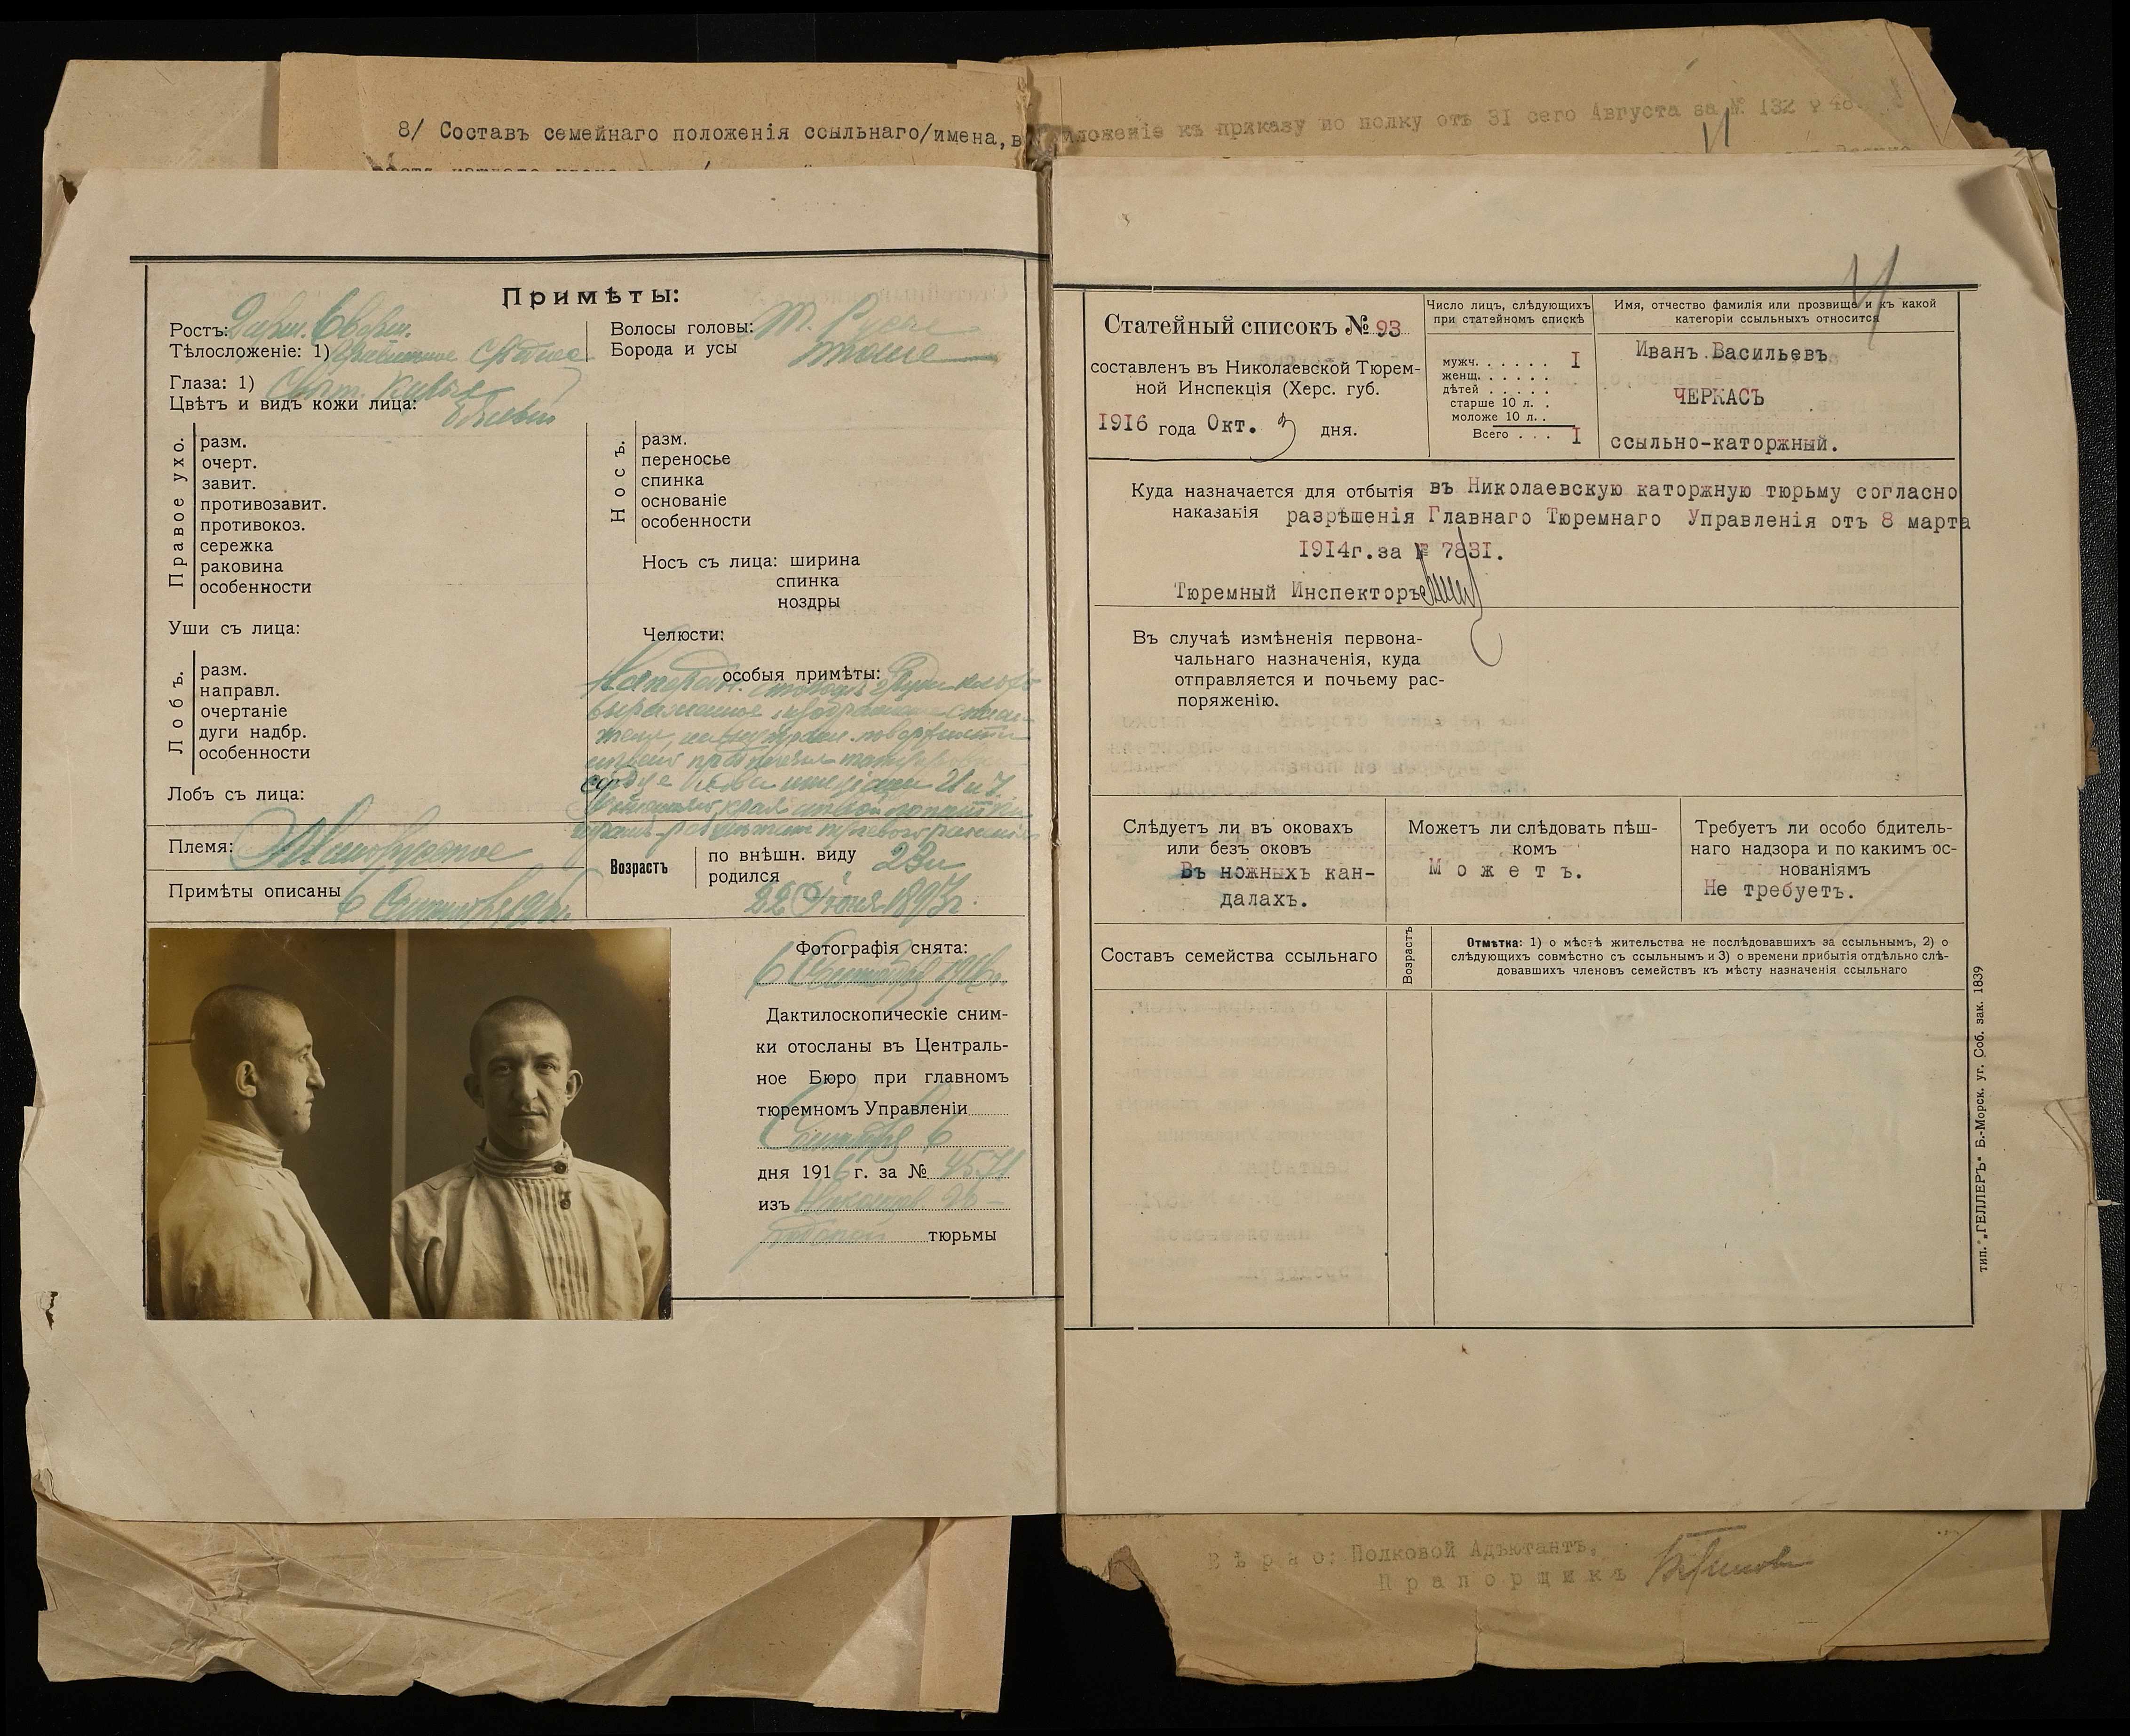 8/ Составъ семейнаго положенія ссыльнаго/имена, в
иложеніе къ приказу по полку отъ 3I сего Августа за № I32
Примѣты:
Ростъ:
Тѣлосложеніе: 1)
Глаза: 1)
Цвѣтъ и видъ кожи лица:
Волосы головы: т. Русые
Борода и усы
Правое ухо.
разм.
очерт.
завит.
противозавит.
противокоз.
сережка
раковина
особенности
Носъ.
разм.
переносье
спинка
основаніе
особенности
Носъ съ лица: ширина
спинка
ноздры
Уши съ лица:
Челюсти:
Лобъ.
разм.
направл.
очертаніе
дуги надбр.
особенности
Лобъ съ лица:
особыя примѣты:
Племя: Малорусское
Примѣты описаны 6 Сентября 1916г.
Возрастъ
по внѣшн. виду 23л
родился 22 Іюня 1893г.
Фотографія снята:
6 Сентября 1916г.
Дактилоскопическіе сним-
ки отосланы въ Централь-
ное Бюро при главномъ
тюремномъ Управленіи
Сентября 6
дня 1916 г. за № 4571
изъ
тюрьмы
Статейный списокъ № 93
составленъ въ Николаевской Тюрем-
ной Инспекціи (Херс. губ.
I9I6 года Окт. 3 дня.
Число лицъ, слѣдующихъ
при статейномъ спискѣ
мужч. . . . . . I
женщ. . . . . .
дѣтей . . . . .
старше 10 л. . .
моложе 10 л. . .
Всего . . . I
Имя, отчество фамилія или прозвище и къ какой
категоріи ссыльныхъ относится
Иванъ Васильевъ
ЧЕРКАСЪ
ссыльно-каторжный.
Куда назначается для отбытія въ Николаевскую каторжную тюрьму согласно
наказанія разрѣшенія Главнаго Тюремнаго Управленія отъ 8 марта
I9I4г.за № 783I.
Тюремный Инспекторъ
Въ случаѣ измѣненія первона-
чальнаго назначенія, куда
отправляется и почьему рас-
поряженію.
Слѣдуетъ ли въ оковахъ
или безъ оков
Въ ножныхъ кан-
далахъ.
Можетъ ли слѣдовать пѣш-
комъ
Можетъ.
Требуетъ ли особо бдитель-
наго надзора и по какимъ ос-
нованіямъ
Не требуетъ.
Составъ семейства ссыльнаго
Возрастъ
Отмѣтка: 1) о мѣстѣ жительства не послѣдовавшихъ за ссыльнымъ, 2) о
слѣдующихъ совмѣстно съ ссыльнымъ и 3) о времени прибытія отдѣльно слѣ-
довавшихъ членовъ семействъ къ мѣсту назначенія ссыльнаго
тип. „ГЕЛЛЕРЪ“ Б.-Морск. уг. Соб. зак. 1839
Вѣрно: Полковой Адъютантъ,
Прапорщикъ